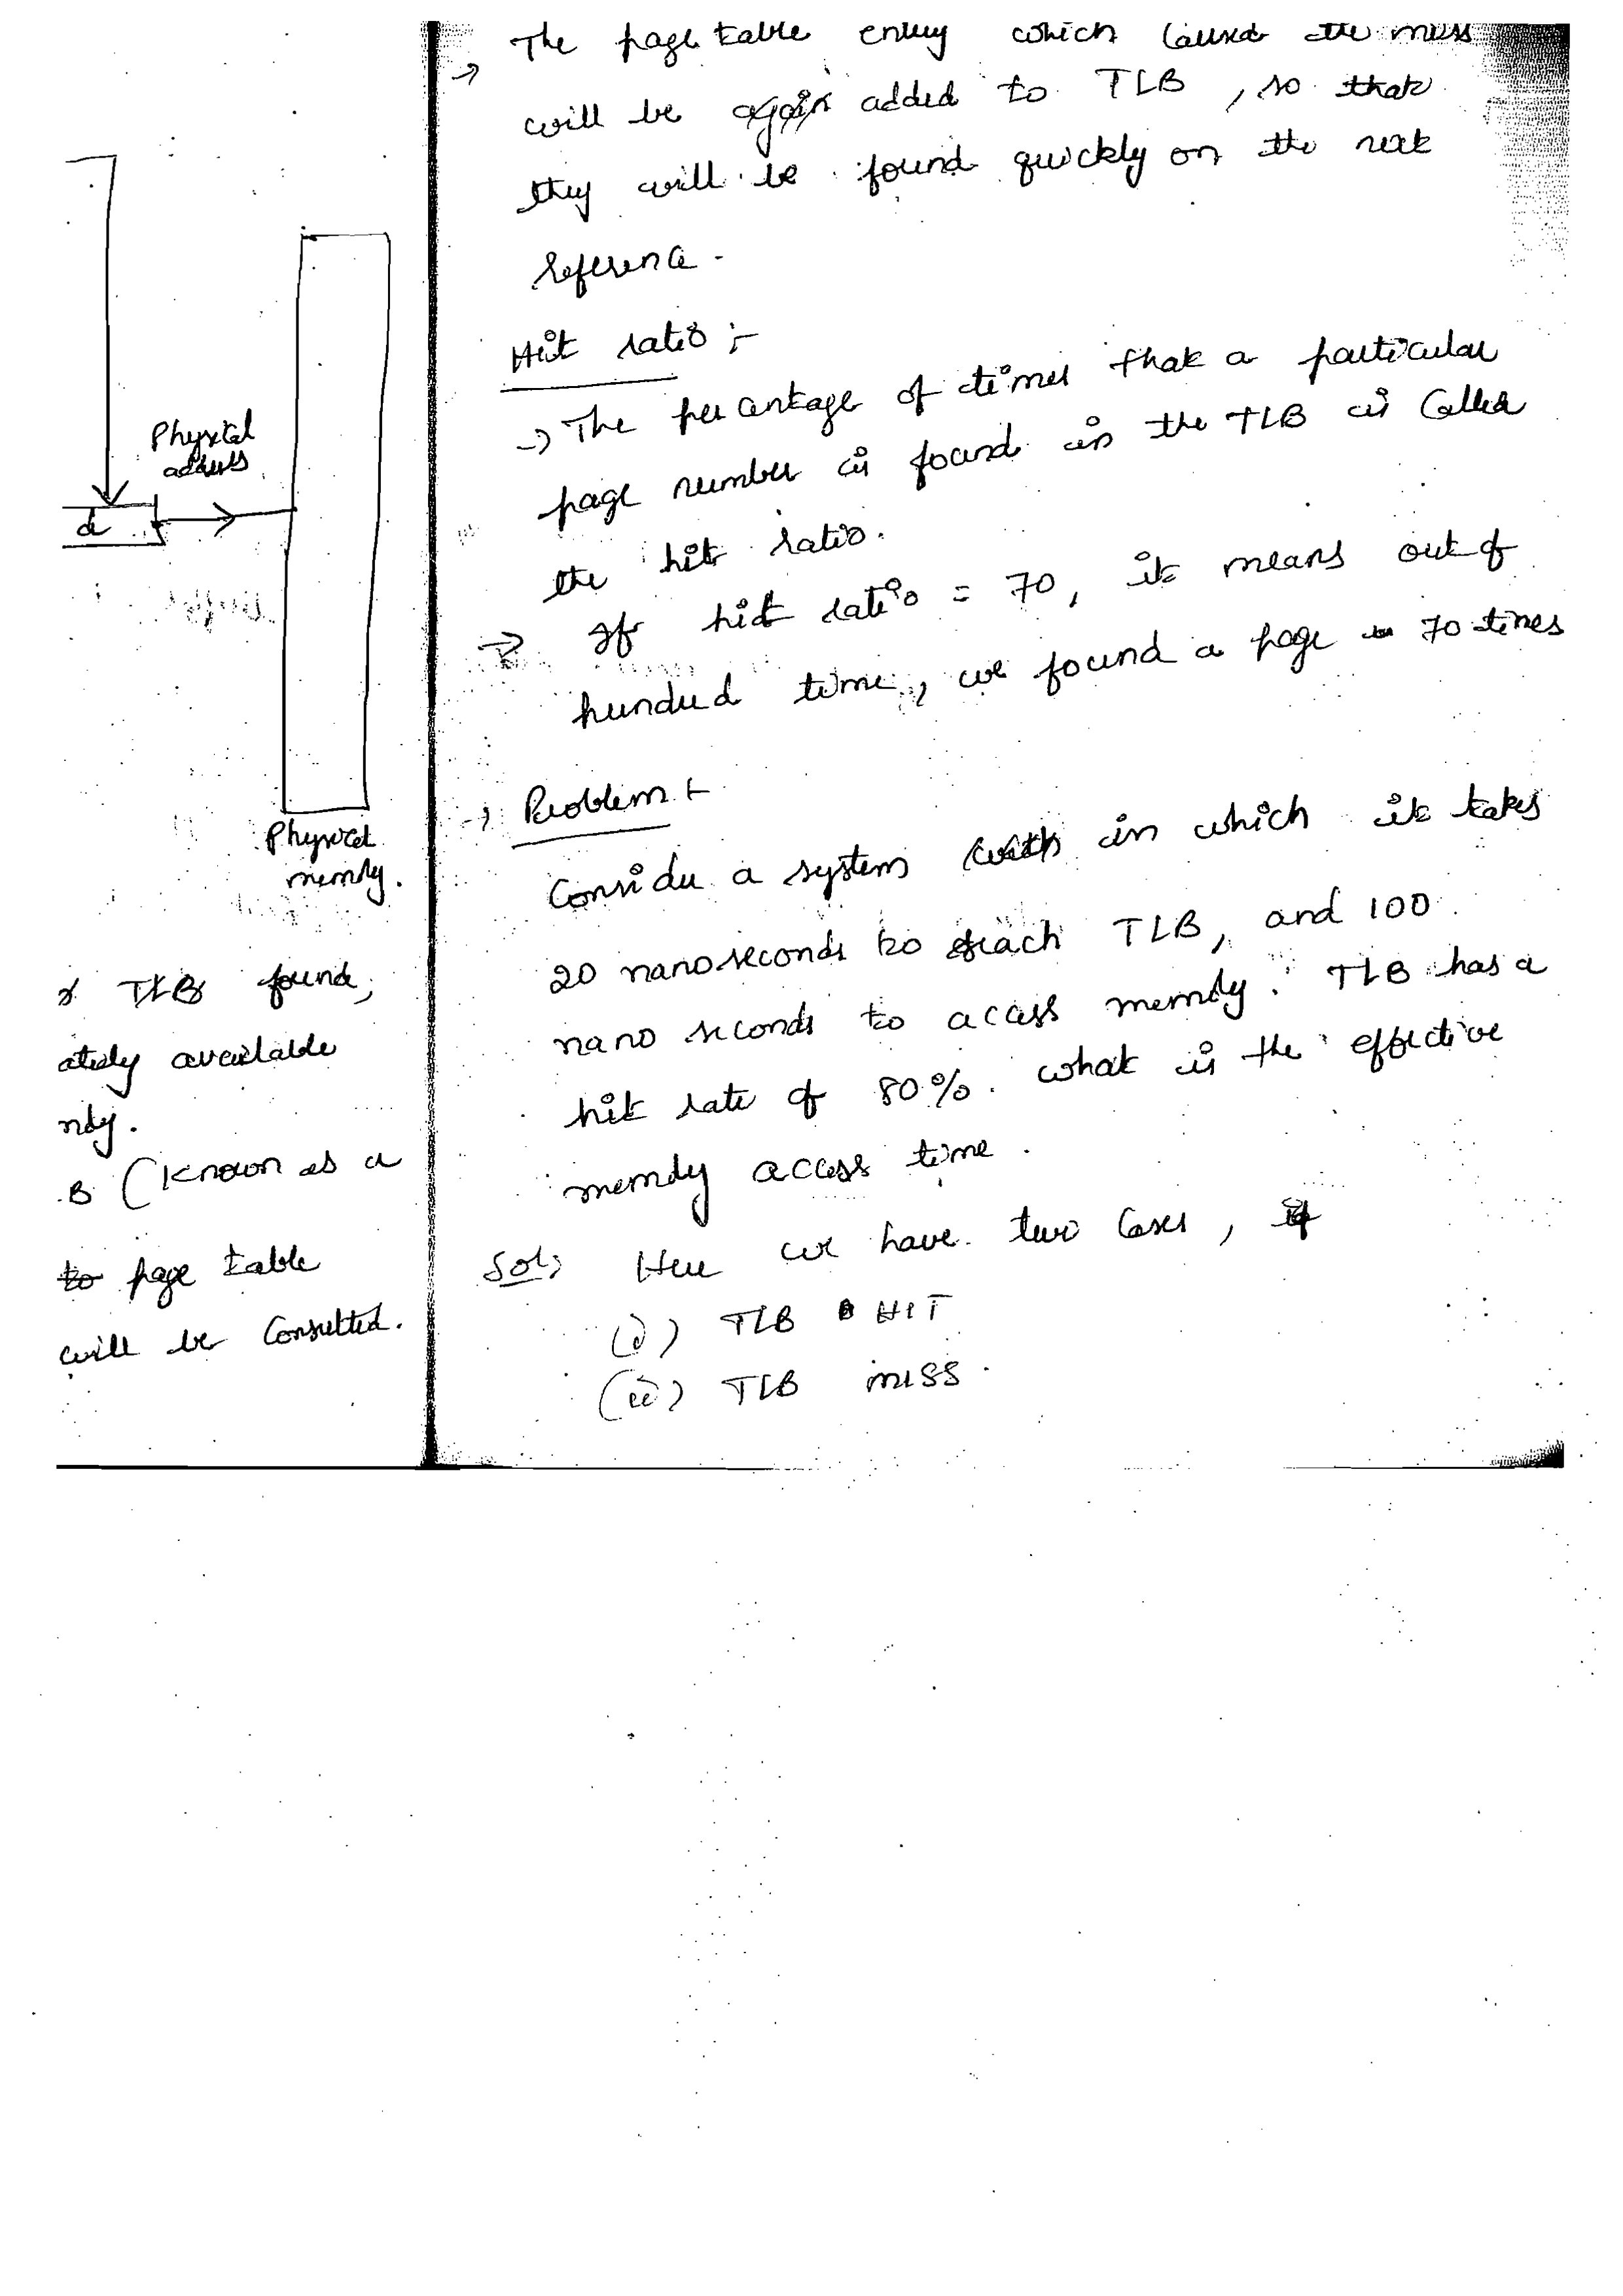 Physical
address
d
Physical
memory.
TLB found,
ately available
ory.
B (known as a
to page table
will be consulted.
→ The page table entry which caused the miss
will be again added to TLB, so that
they will be found quickly on the next
reference.
Hit ratio :-
→ The percentage of times that a particular
page number is found in the TLB is called
the hit ratio.
→ If hit ratio = 70, it means out of
hundred time, we found a page 70 times
→ Problem :-
Consider a system with in which it takes
20 nanoseconds to reach TLB, and 100
nano seconds to access memory. TLB has a
hit rate of 80%. what is the effective
memory access time.
Sol: Here we have two cases, if
(i) TLB HIT
(ii) TLB miss.